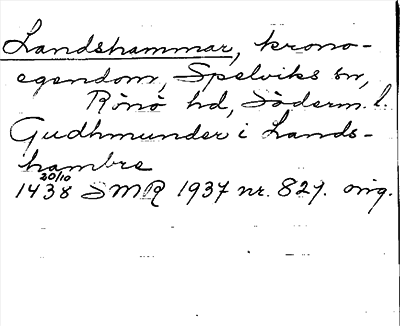 Landshammar, krono-
egendom, Spelviks sn,
Rönö hd, Söderm. l.
Gudhmunder i Lands-
hambre
20/10
1438 SMR 1937 nr. 827. orig.